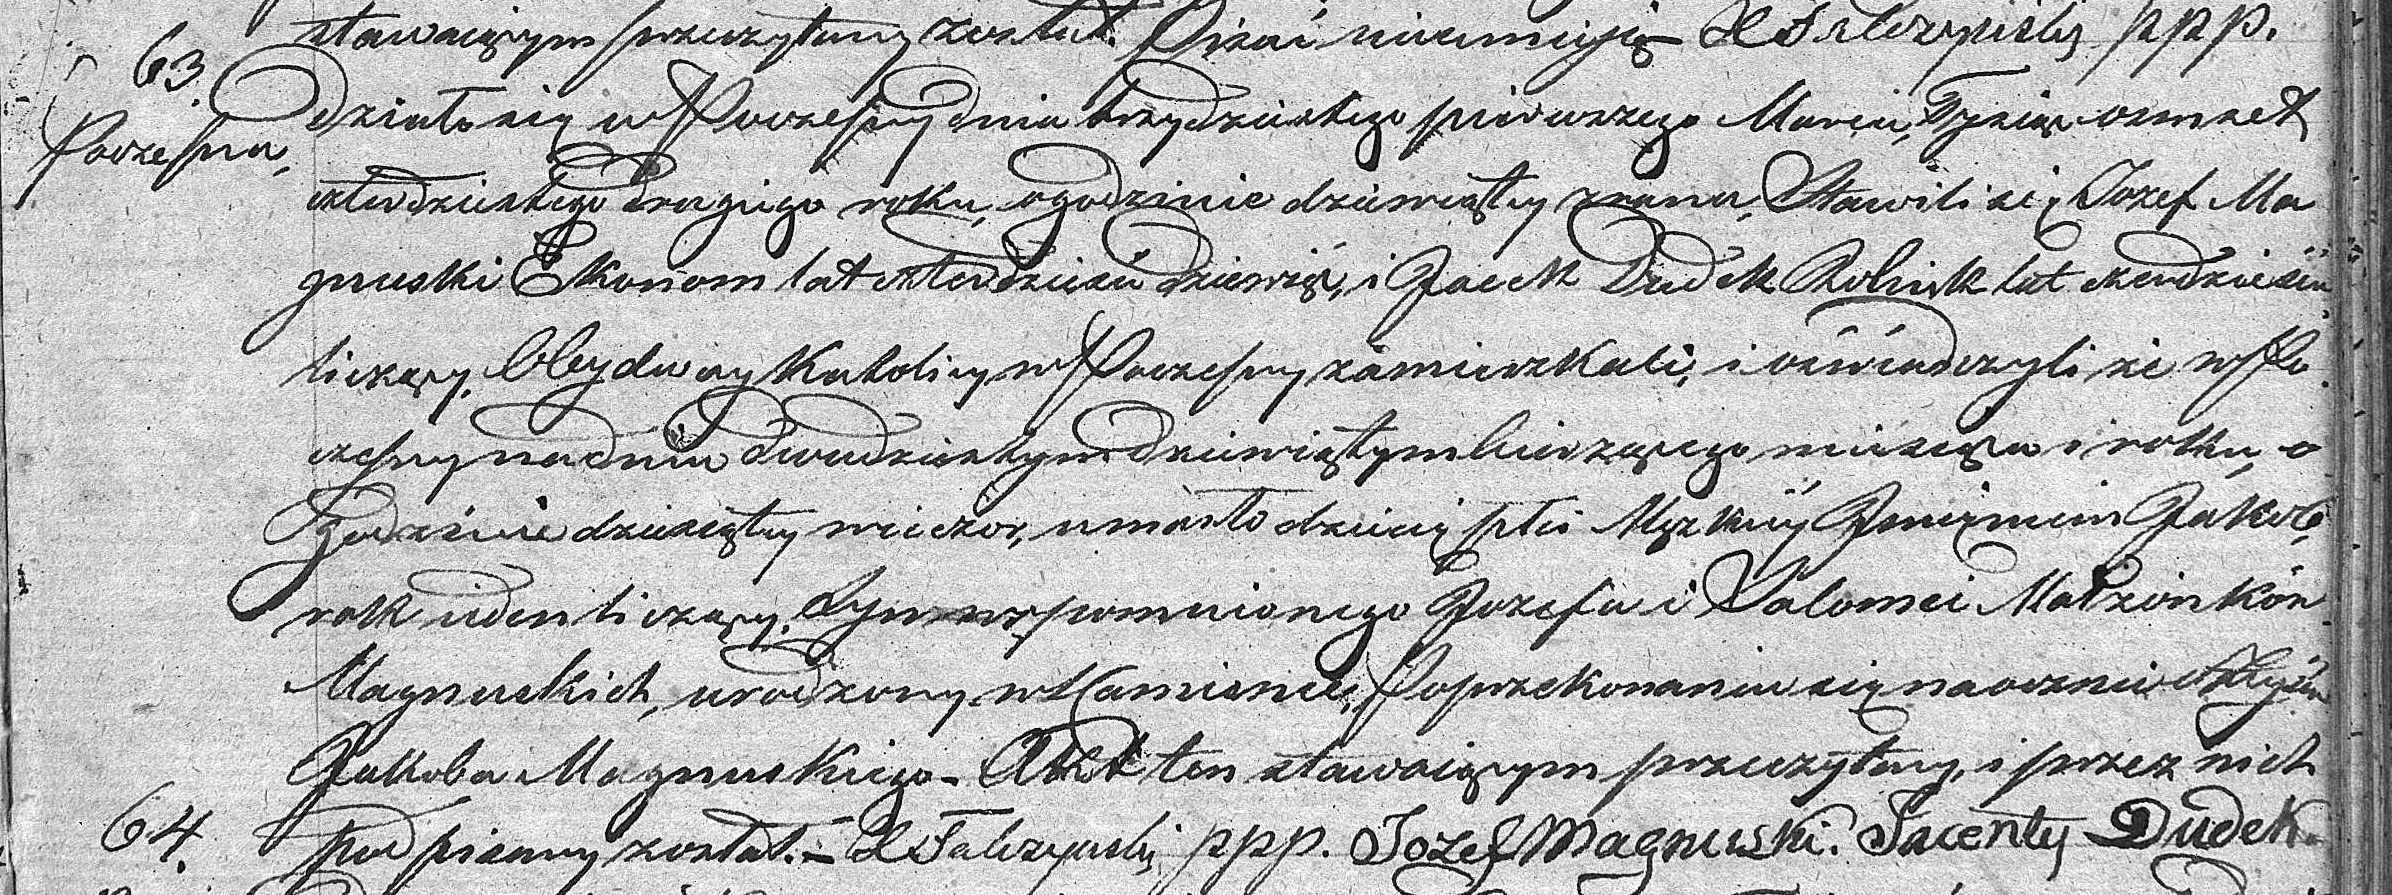 stawaiącym przeczytany został. Pisać nieumieją – X Falczyński ppp.
63
Poczesna,
działo się w Poczesny dnia trzydziestego pierwszego Marca, Tysiąc osmset
czterdziestego Drugiego roku, o godzinie dziewiąty zrana, Stawili się Jozef Ma
gnuski Ekonom lat czterdzieści dziewięć, i Jacek Dudek Rolnik lat czterdzieści
liczący, Obydway Katolicy w Poczesny zamieszkali, i oświadczyli że w Po
czesny na dniu dwudziestym dziewiątym bieżącego miesiąca i roku, o
godzinie dziesiąty wieczor, umarło dziecię płci Męzkiéy Jmieniem Jakob,
rok ieden liczący, Syn wspomnionego Jozefa i Salomei Małżonków
Magnuskich, urodzony w Kamienicy, Poprzekonaniu się naocznie o Zeyściu
Jakoba Magnuskiego – Akt ten stawaiącym przeczytany, i przez nich
64.
podpisany został. – X Falczyński ppp. Jozef Magnuski. Jacenty Dudek